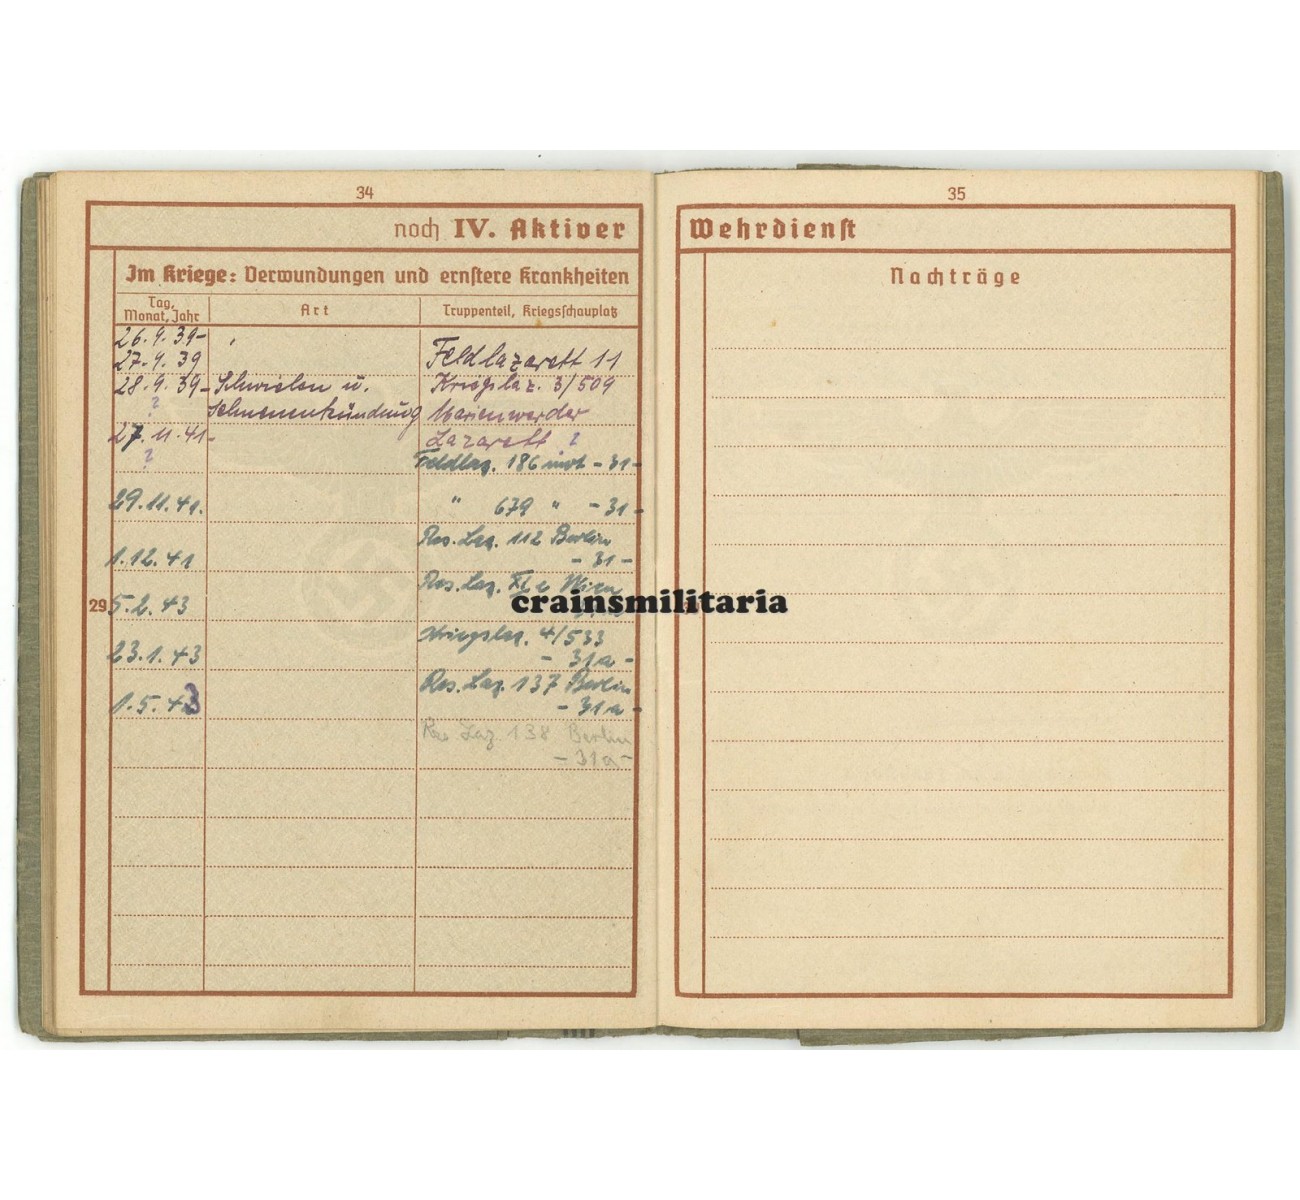 34
noch IV. Aktiver
Im Kriege: Verwundungen und ernstere Krankheiten
Tag, Monat, Jahr
Art
Truppenteil, Kriegsschauplatz
26.9.39-
27.9.39 Feldlazarett 11
28.9.39- Schwielen u. Kriegslaz. 3/509
? Sehnenenzündung Marienwerder
27.11.41- Lazarett ?
? Feldlaz. 186 mot -31-
29.11.41. " 679 " -31-
Res. Laz. 112 Berlin
1.12.41 -31-
Res. Laz. Wien
29 5.2.43
Kriegslaz. 4/533
23.1.43 -31a-
Res. Laz. 137 Berlin
1.5.43 -31a-
Res Laz. 138 Berlin
-31a-
35
Wehrdienst
Nachträge
crainsmilitaria